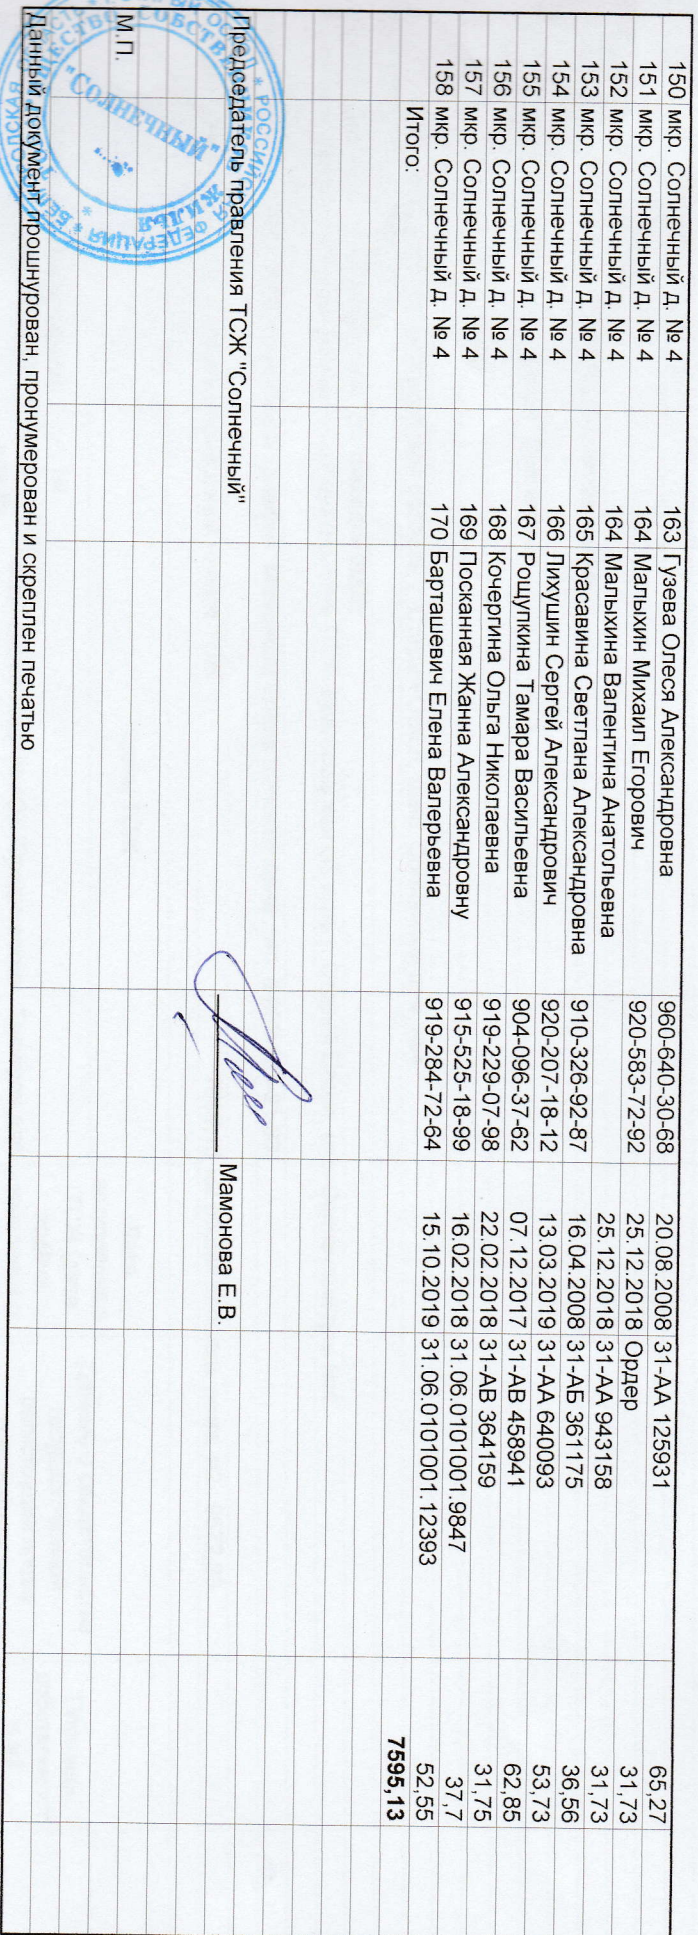 150 мкр. Солнечный д. № 4 163 Гузева Олеся Александровна 960-640-30-68 20.08.2008 31-АА 125931 65,27
151 мкр. Солнечный д. № 4 164 Малыхин Михаил Егорович 920-583-72-92 25.12.2018 Ордер 31,73
152 мкр. Солнечный д. № 4 164 Малыхина Валентина Анатольевна 25.12.2018 31-АА 943158 31,73
153 мкр. Солнечный д. № 4 165 Красавина Светлана Александровна 910-326-92-87 16.04.2008 31-АБ 361175 36,56
154 мкр. Солнечный д. № 4 166 Лихушин Сергей Александрович 920-207-18-12 13.03.2019 31-АА 640093 53,73
155 мкр. Солнечный д. № 4 167 Рощупкина Тамара Васильевна 904-096-37-62 07.12.2017 31-АВ 458941 62,85
156 мкр. Солнечный д. № 4 168 Кочергина Ольга Николаевна 919-229-07-98 22.02.2018 31-АВ 364159 31,75
157 мкр. Солнечный д. № 4 169 Посканная Жанна Александровну 915-525-18-99 16.02.2018 31.06.0101001.9847 37,7
158 мкр. Солнечный д. № 4 170 Барташевич Елена Валерьевна 919-284-72-64 15.10.2019 31.06.0101001.12393 52,55
Итого: 7595,13
Председатель правления ТСЖ "Солнечный" Мамонова Е.В.
М.П.
"СОЛНЕЧНЫЙ"
ЖИЛЬЯ
ФЕДЕРАЦИЯ
Данный документ прошнурован, пронумерован и скреплен печатью